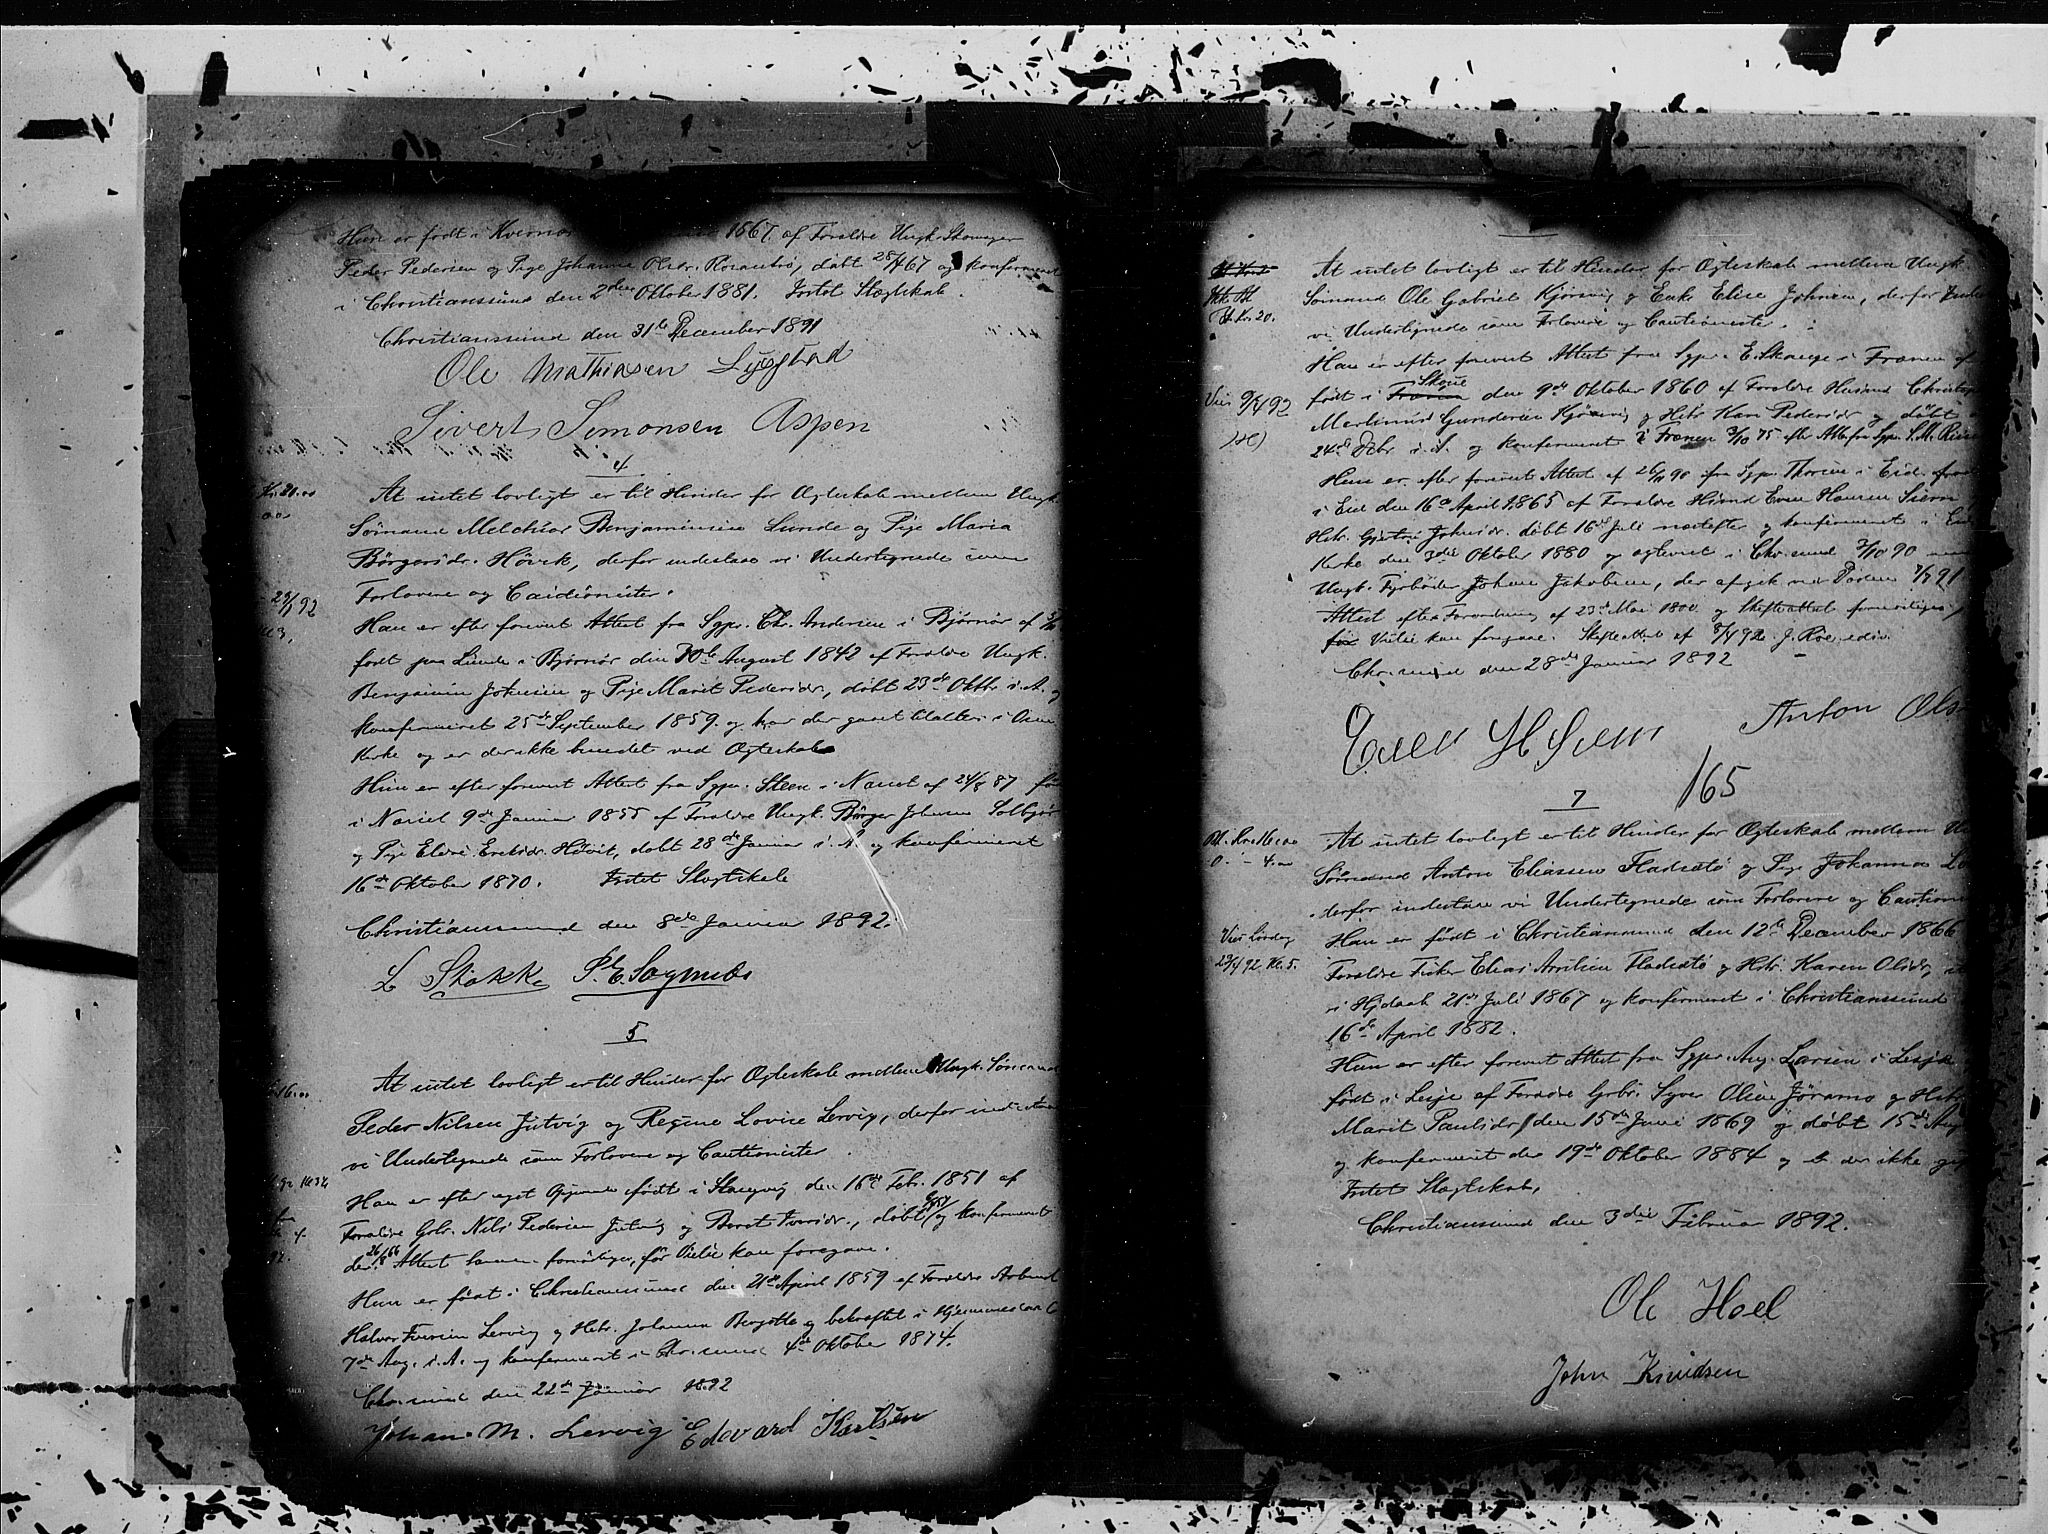 Hun er født i 1867 af Forældre Ungk. Skomager
Peder Pedersen og Pige Johanna Olsdr. døbt 28/4 67 og konfirmeret
i Christianssund den 2den Oktober 1881. Intet Slægtskab.
Christianssund den 31te December 1891
Ole Mathiasen Lysgtad
Sivert Simonsen Aspen
4
Kr. 20.00
At intet lovligt er til Hinder for Ægteskab mellem Ungk.
Sømand Melchior Benjaminsen Lunde og Pige Maria
Børgersdr. Høvik, derfor indestaa vi Undertegnede som
Forlovere og Cautionister.
29/1 92
Han er efter forevist Attest fra Sgpr. Chr. Andersen i Bjørnør af
født paa Lunde i Bjørnør den 10de August 1842 af Forældre Ungk.
Benjamin Johnsen og Pige Marit Pedersdr., døbt 23de Oktbr. s. A. og
konfirmeret 25de September 1859. og har der gaaet til alters i Osen
Kirke og er der ikke bundet ved Ægteskab
Hun er efter forevist Attest fra Sgpr. Steen i Næsset af 24/8 87
i Næsset 9de Januar 1855 af Forældre Ungk. Børger Johnsen Solbjør
og Pige Eldri Eriksdr. Høvik, døbt 28de Januar s. A. og konfirmeret
16de Oktober 1870. Intet Slægtskab
Christianssund den 8de Januar 1892.
L Stokke P. E. Sognnes
5
16.00
At intet lovligt er til Hinder for Ægteskab mellem Ungk. Sømand
Peder Nilsen Jutvig og Regine Lovise Lervig, derfor indestaa
vi Undertegnede som Forlovere og Cautionister
Han er efter eget Opgivende født i Stangvig den 16de Febr. 1851 af
Forældre Gbr. Nils Pedersen Jutvig og Beret Iversdr., døbt og konfirmeret
den 26/8 66 Attest herom for Vielse kan foregaae.
Hun er født i Christianssund den 21de April 1859 af Forældre Arbmd.
Halvor Iversen Lervig og Hstr. Johanna Bergitte og bekræftet i Hjemmedaab
7de Aug. s. A. og konfirmeret i Chr.sund 4de Oktober 1874.
Chr.sund den 22de Januar 1892
Johan M. Lervig Edevard Karlsen
At intet lovligt er til Hinder for Ægteskab mellem Ungk.
Kr. 20.
Sømand Ole Gabriel Kjørsvig og Enke Elise Johnsen, derfor
vi Undertegnede som Forlovere og Cautionister.
Han er efter forevist Attest fra Sgpr. E. Skauge i Frænen af
Skoue
Viet 9/4 92
født i Frænen den 9de Oktober 1860 af Forældre Husmd. Christoph
Gundersen Kjørsvig og Hstr. Kari Pedersdr. og døbt
24de Dcbr. s. A. og konfirmeret i Frænen 3/10 75 efter Att. fra Sgpr. S. M.
Hun er efter forevist Attest af 26/9 90 fra Sgpr. Thorsen i Eid
i Eid den 16de April 1865 af Forældre Husmd Even Hansen Siem
Hstr. Gjertri Johnsdr. døbt 16de Juli næstefter og konfirmeret i Eids
Kirke den 3die Oktober 1880 og ægteviet i Chr.sund 7/10 90
Ungk. Fyrbøder Johan Jakobsen, der afgik ved Døden 7/7 91
Attest efter Forordning af 23de Mai 1800 og Skifteattest
før Vielse kan foregaae. Skifteattest af 8/4 92
Chr.sund den 28de Januar 1892
Even H Siem Anton Olsen
165
7
Bl. Kr. 16.00
O. " - 4.00
At intet lovligt er til Hinder for Ægteskab mellem
Sømand Anton Eliassen Fladsetø og Pige Johanna
derfor indestaa vi Undertegnede som Forlovere og Cautioni
Viet Lørdag
Han er født i Christianssund den 12te December 1866
23/4 92 Kl. 5.
Forældre Fisker Elias Fladsetø og Hstr. Karen Olsdr,
i Hjdaab 21de Juli 1867 og konfirmeret i Christianssund
16de April 1882.
Hun er efter forevist Attest fra Sgpr. Aug. Larsen i Lesje
født i Lesje af Forældre Gbr. Syver Olsen Jøramo og Hstr
Marit Paulsdr den 15de Juni 1869 og døbt 15de Aug
og konfirmeret den 19de Oktober 1884 og er der ikke
Intet Slægtskab,
Christianssund den 3die Februar 1892.
Ole Hoel
John Knudsen